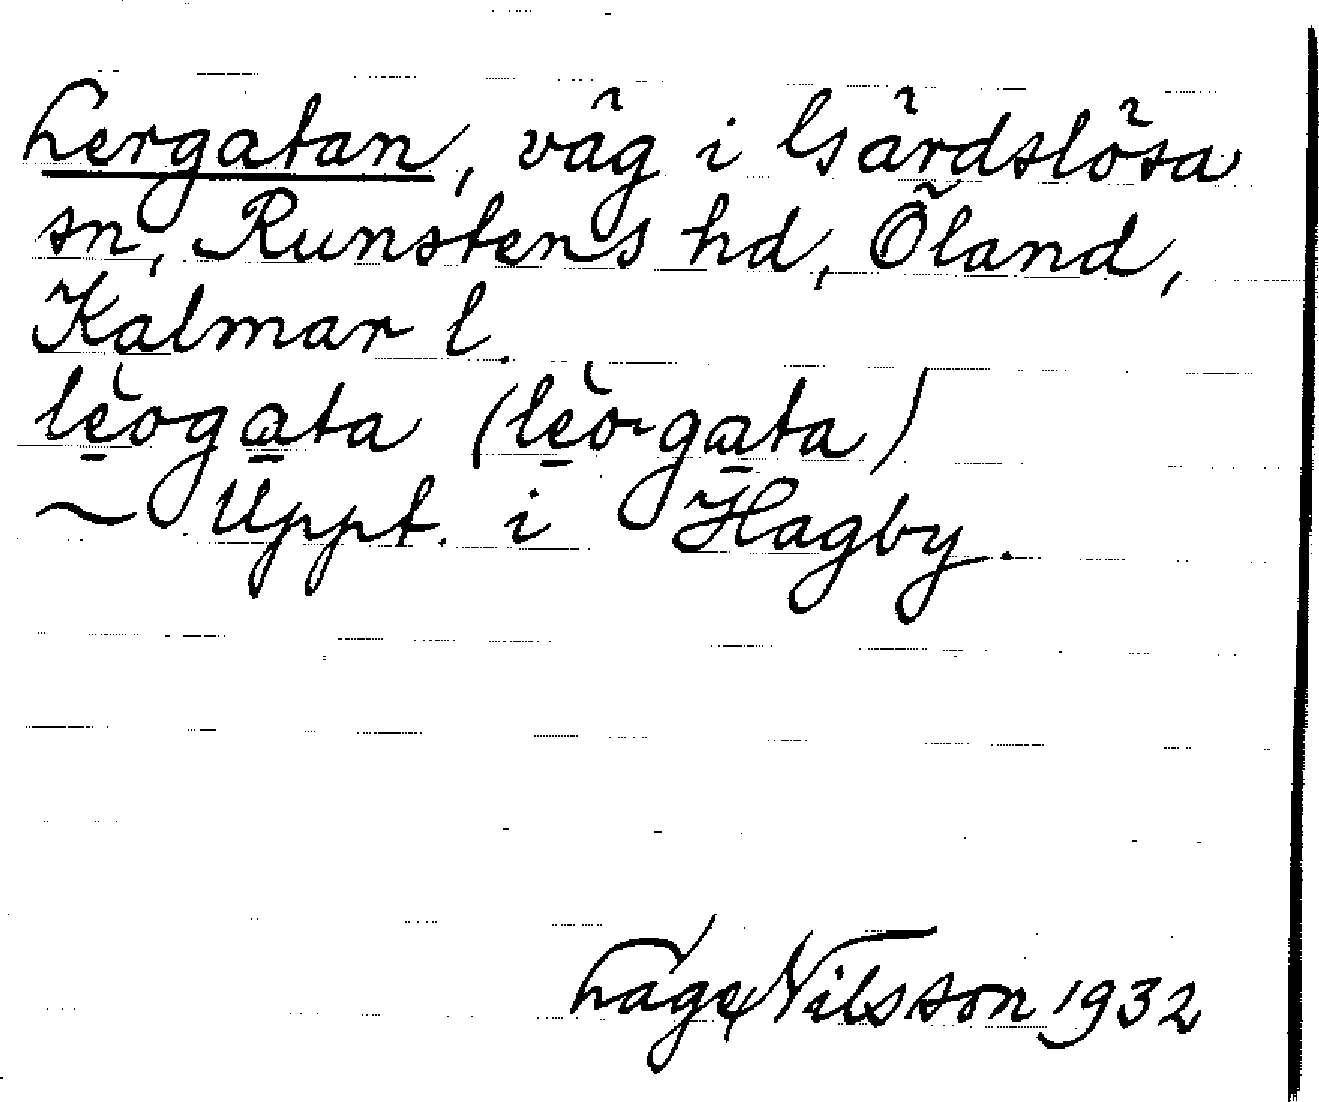 Lergatan, väg i Gärdslösa
sn, Runstens hd, Öland,
Kalmar l.
le̱òga̱ta (le̱ò-ga̱ta)
~ Uppt. i Hagby.
Låge Nilsson 1932